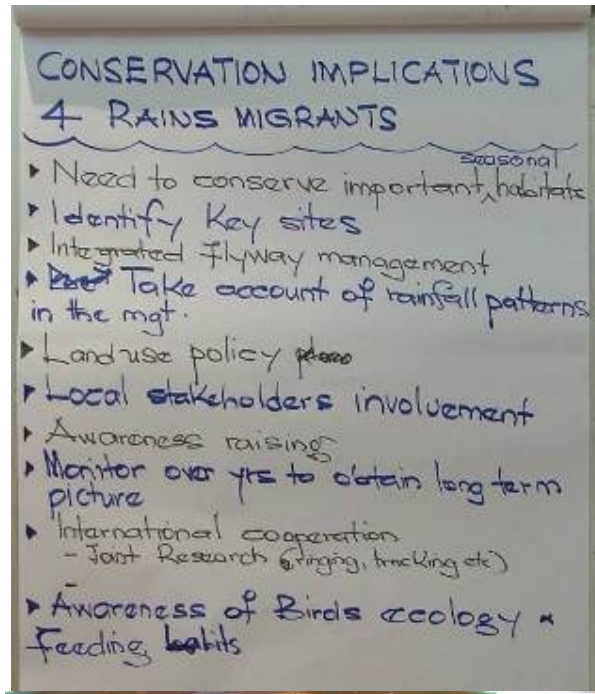 CONSERVATION IMPLICATIONS
4 RAINS MIGRANTS
seasonal
▸ Need to conserve important ^ habitats
▸ Identify Key sites
▸ Integrated Flyway management
▸ Take account of rainfall patterns
in the mgt.
▸ Land use policy
▸ Local stakeholders involvement
▸ Awareness raising
▸ Monitor over yrs to obtain long term
picture
▸ International cooperation
- Joint Research (ringing, tracking etc)
-
▸ Awareness of Birds ecology &
Feeding habits